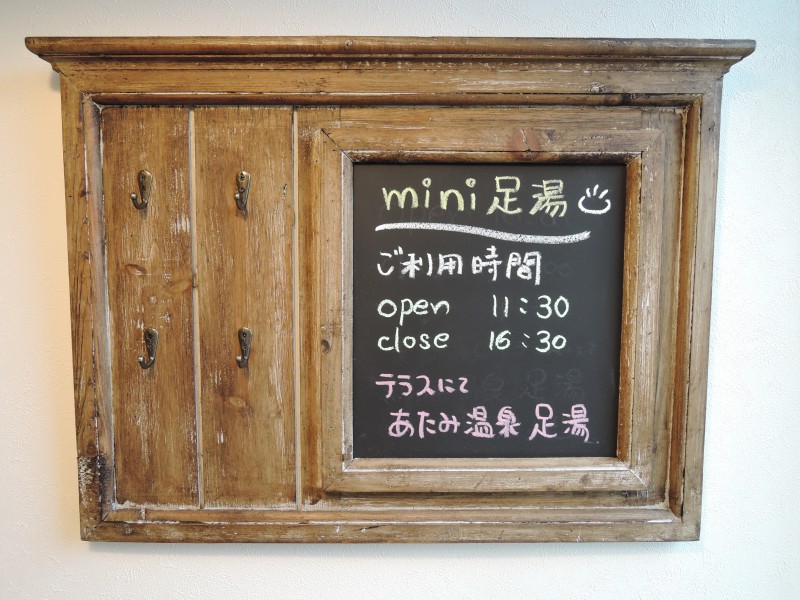 mini足湯♨
ご利用時間
open 11:30
close 16:30
テラスにて
あたみ温泉 足湯